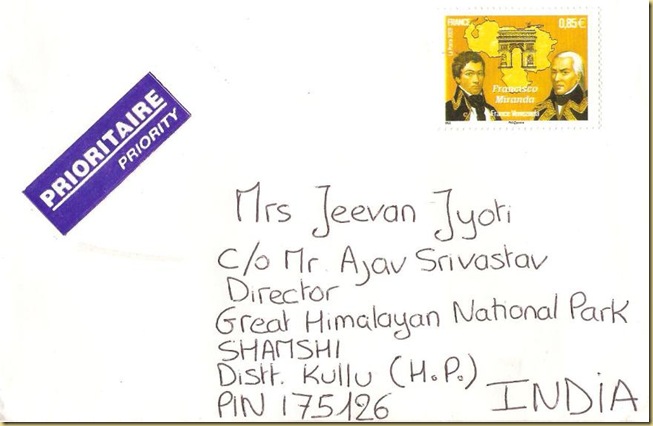 FRANCE 0,85€
Francisco
Miranda
France Venezuela
PRIORITAIRE
PRIORITY
Mrs Jeevan Jyoti
C/o Mr. Ajav Srivastav
Director
Great Himalayan National Park
SHAMSHI
Distt. Kullu (H.P.)
PIN 175126
INDIA